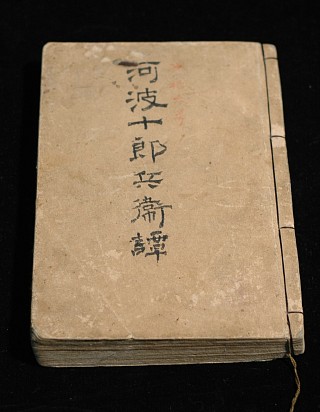 河波十郎兵衞譚